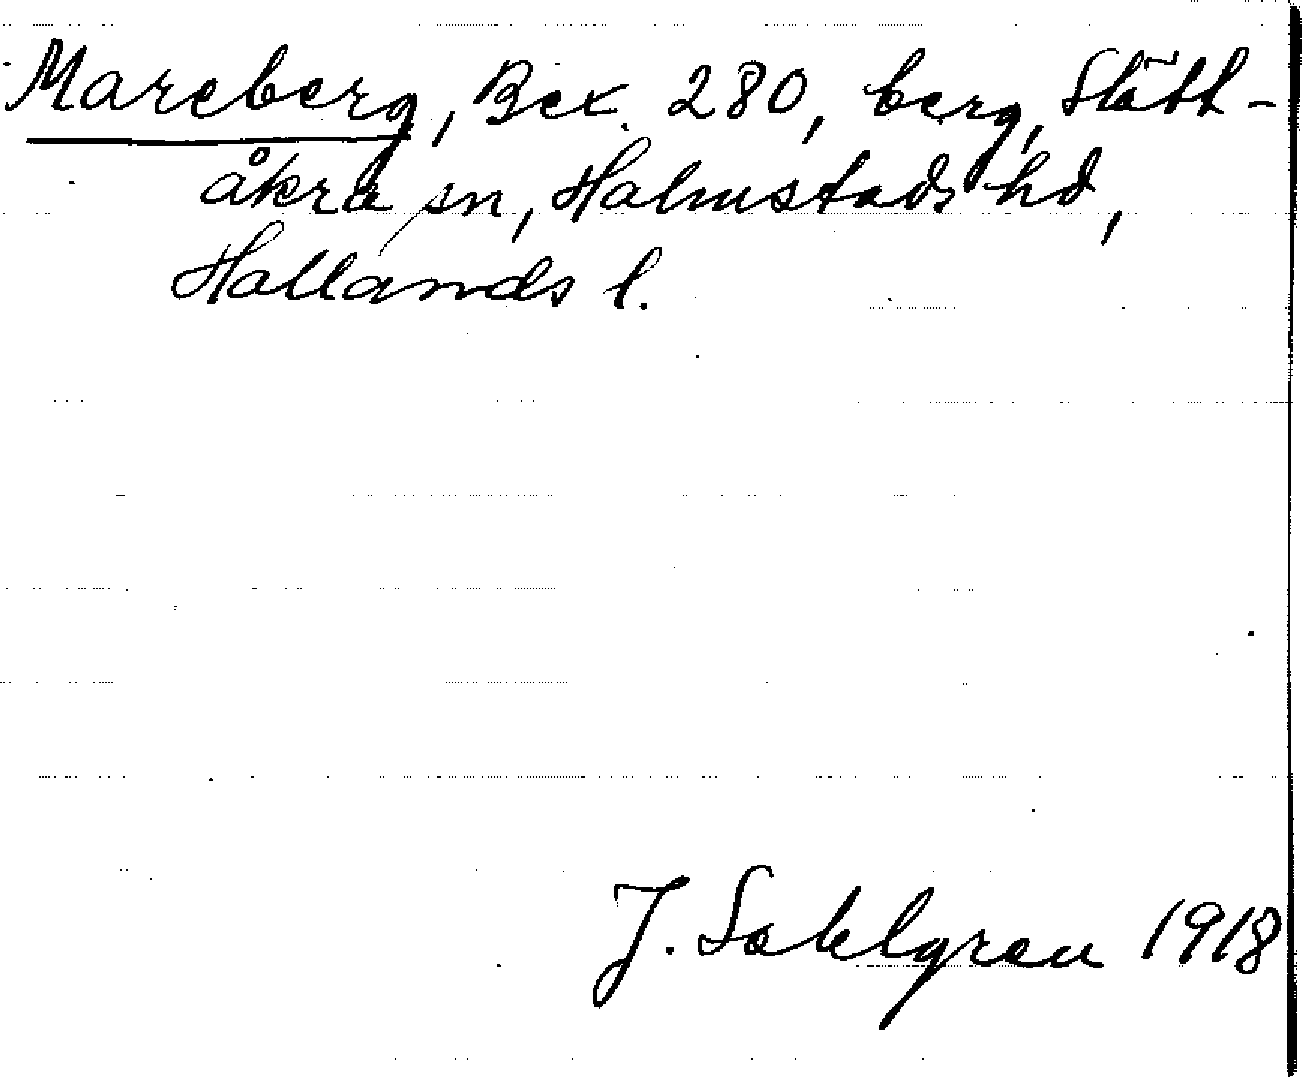 Mareberg, Bex. 280, berg, Slätt-
åkra sn, Halmstads hd,
Hallands l.
J. Sahlgren 1918